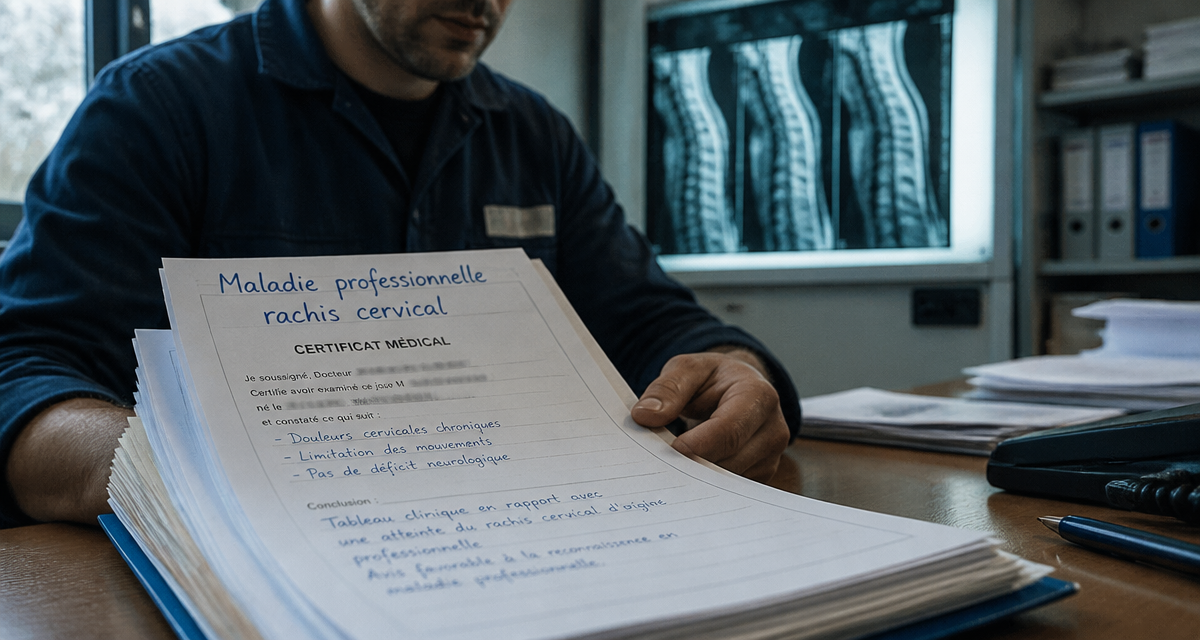 Maladie professionnelle
rachis cervical
CERTIFICAT MÉDICAL
Je soussigné, Docteur
Certifie avoir examiné ce jour M
né le
et constaté ce qui suit :
- Douleurs cervicales chroniques
- Limitation des mouvements
- Pas de déficit neurologique
Conclusion :
Tableau clinique en rapport avec
une atteinte du rachis cervical d'origine
professionnelle
Avis favorable à la reconnaissance en
maladie professionnelle.